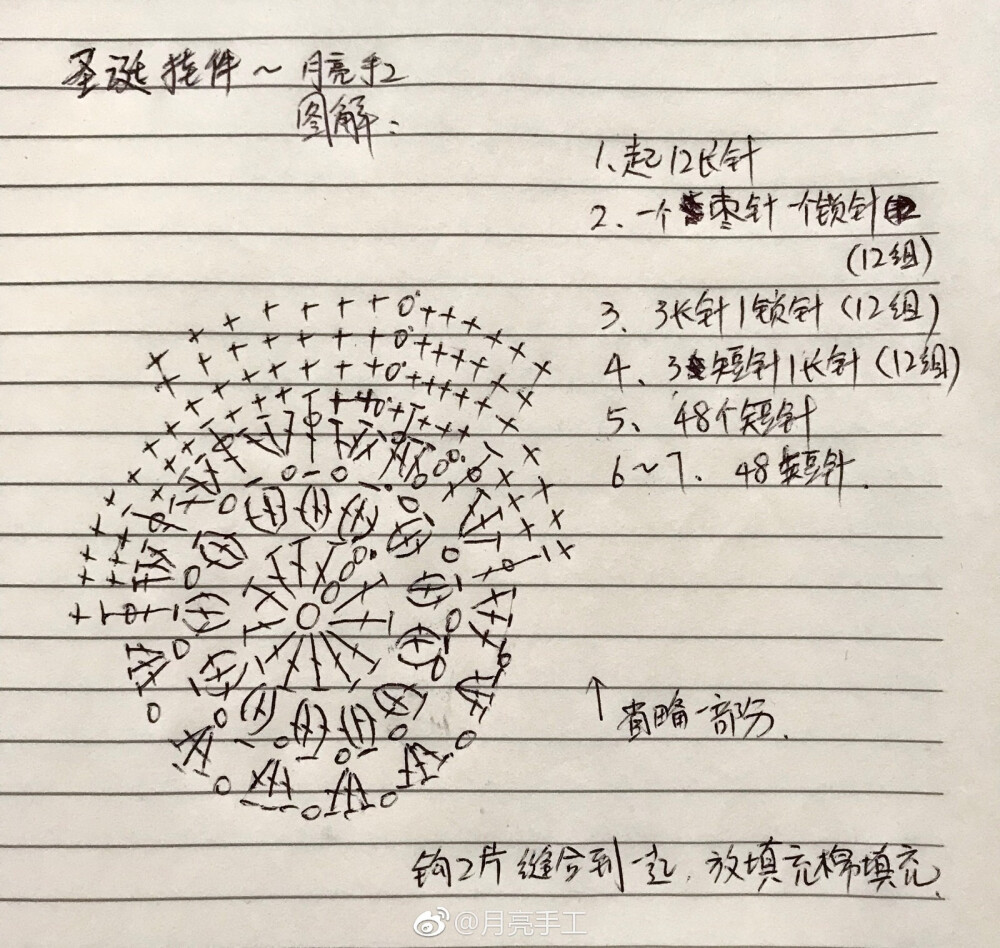 圣诞挂件~月亮手工
图解：
1、起12长针
2、一个枣针一个锁针
(12组)
3、3长针1锁针(12组)
4、3短针1长针(12组)
5、48个短针
6~7、48短针.
↑省略一部分.
钩2片缝合到一起,放填充棉填充.
@月亮手工